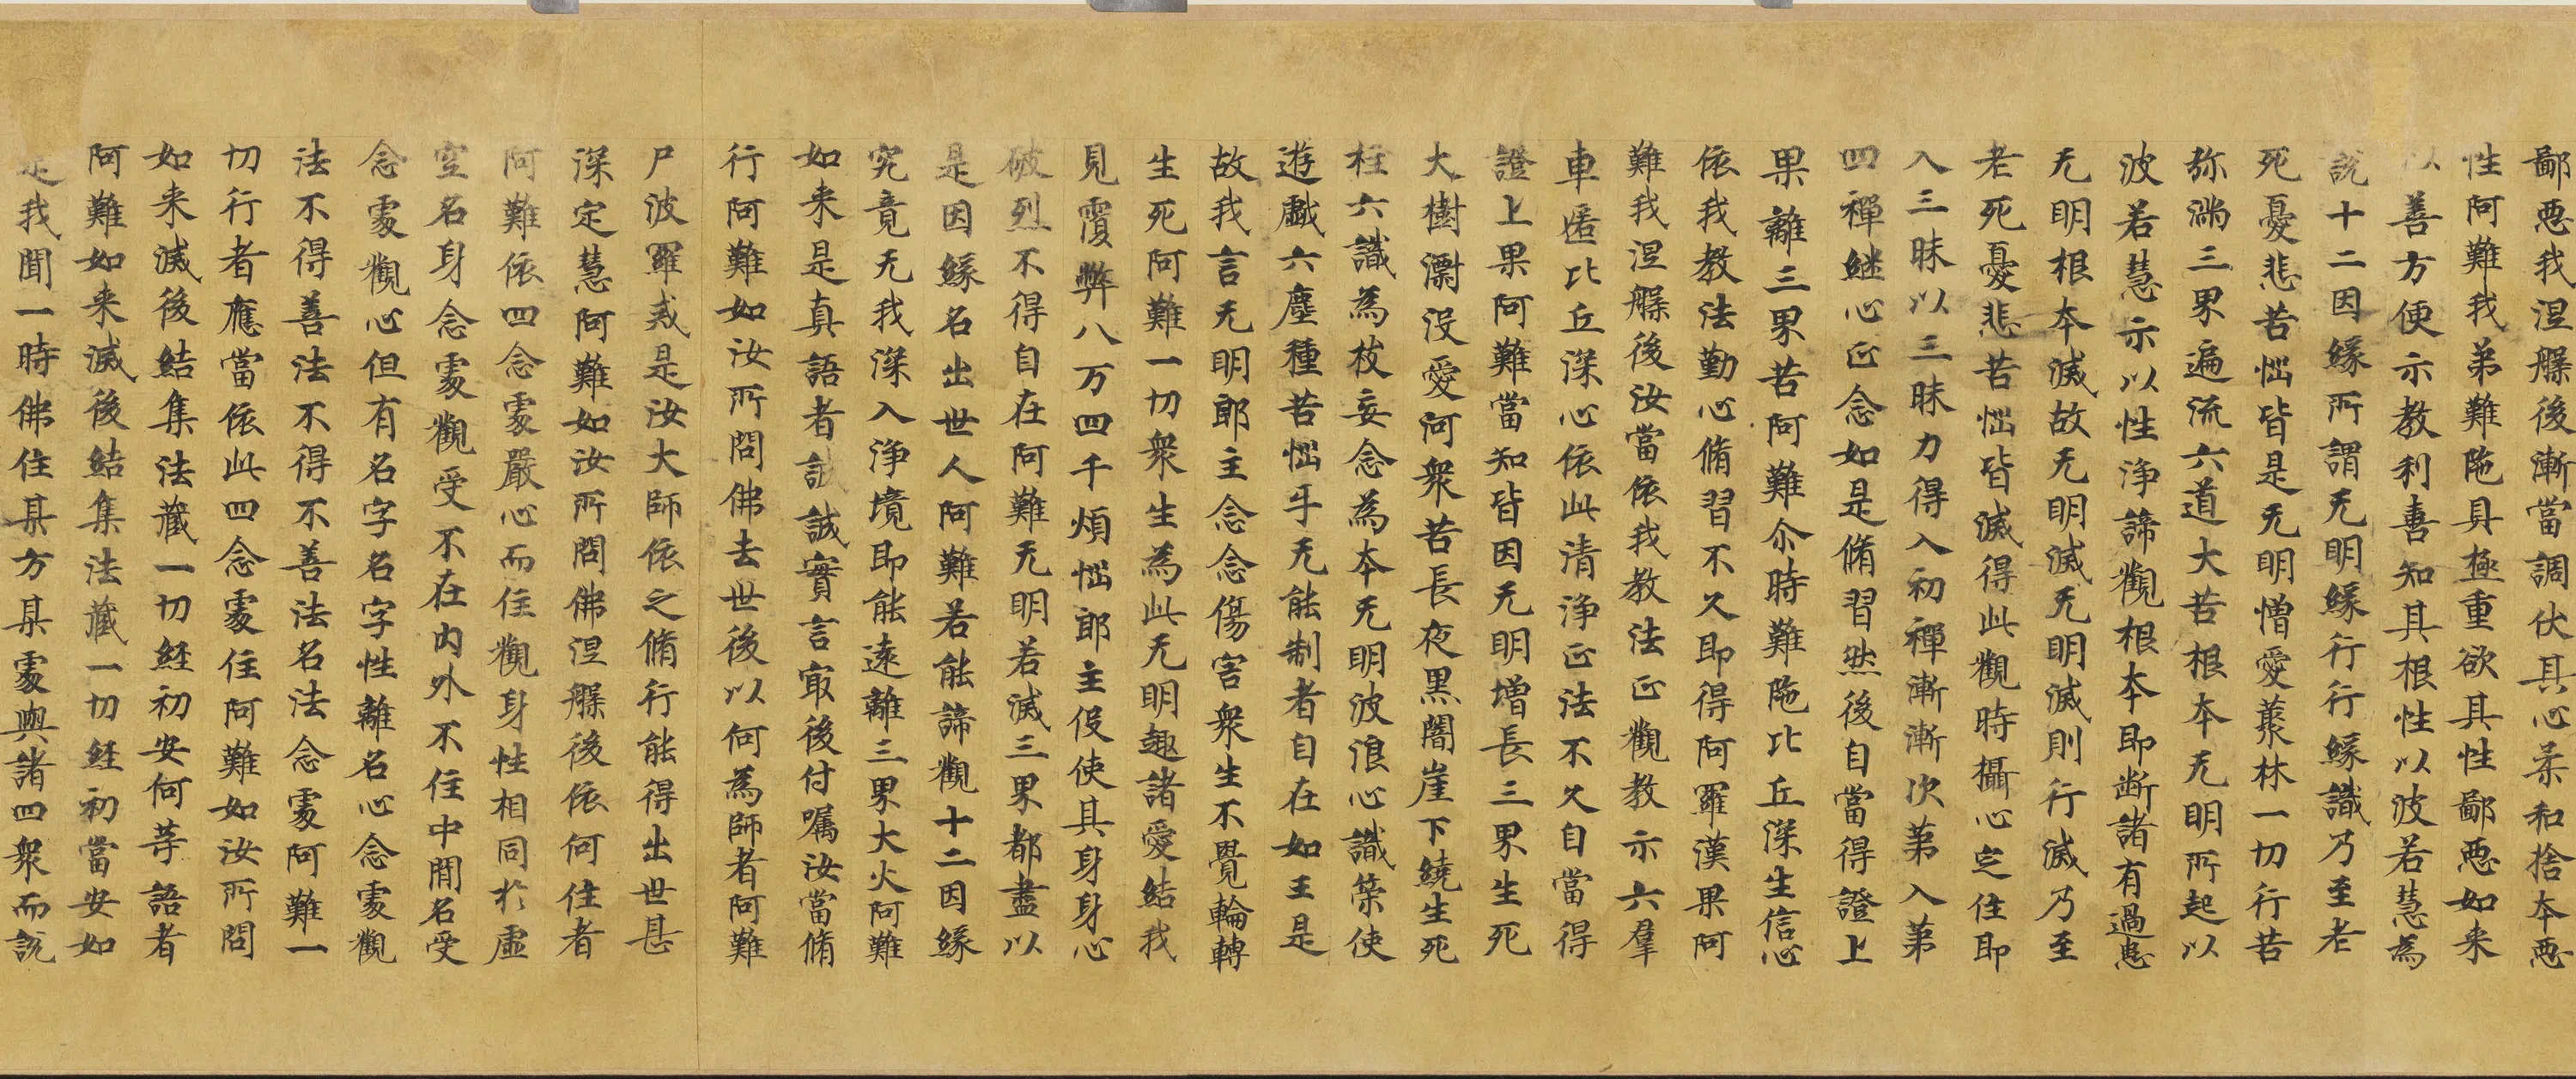 鄙惡我涅槃後漸當調伏其心柔和捨夲惡
性阿難我弟難陁具極重欲其性鄙惡如来
以善方便示教利喜知其根性以波若慧為
說十二因緣所謂无明緣行行緣識乃至老
死憂悲苦惱皆是无明憎愛藂林一切行苦
弥滿三界遍流六道大苦根夲无明所起以
波若慧示以性淨諦觀根夲即断諸有過患
无明根夲滅故无明滅无明滅則行滅乃至
老死憂悲苦惱皆滅得此觀時攝心定住即
入三昧以三昧力得入初禪漸漸次第入第
四禪継心正念如是脩習然後自當得證上
果離三界苦阿難尒時難陁比丘深生信心
依我教法勤心脩習不久即得阿羅漢果阿
難我涅槃後汝當依我教法正觀教示六羣
車匿比丘深心依此清淨正法不久自當得
證上果阿難當知皆因无明增長三界生死
大樹漂没愛河衆苦長夜黑闇崖下繞生死
柱六識為枝妄念為夲无明波浪心識策使
遊戲六塵種苦惱牙无能制者自在如王是
故我言无明郎主念念傷害衆生不覺輪轉
生死阿難一切衆生為此无明趣諸愛結我
見覆弊八万四千煩惱郎主伇使其身身心
破烈不得自在阿難无明若滅三界都盡以
是因緣名出世人阿難若能諦觀十二因緣
究竟无我深入淨境即能遠離三界大火阿難
如来是真語者誠誠實言㝡後付囑汝當脩
行阿難如汝所問佛去世後以何為師者阿難
尸波羅戒是汝大師依之脩行能得出世甚
深定慧阿難如汝所問佛涅槃後依何住者
阿難依四念處嚴心而住觀身性相同於虛
空名身念處觀受不在内外不住中閒名受
念處觀心但有名字名字性離名心念處觀
法不得善法不得不善法名法念處阿難一
切行者應當依此四念處住阿難如汝所問
如来滅後結集法藏一切經初安何䓁語者
阿難如来滅後結集法藏一切經初當安如
是我聞一時佛住某方某處與諸四衆而說